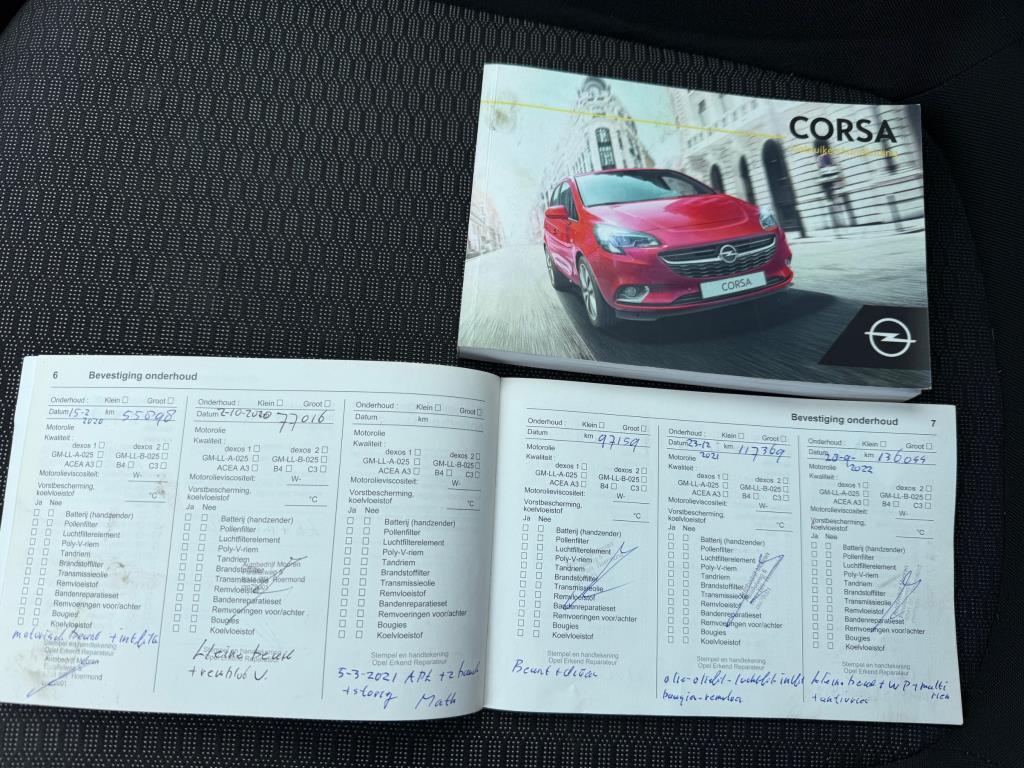 CORSA
CORSA
6 Bevestiging onderhoud
Onderhoud : Klein Groot
Datum 15-2 2020 km 55698
Motorolie
Kwaliteit :
dexos 1 dexos 2
GM-LL-A-025 GM-LL-B-025
ACEA A3 B4 C3
Motorolieviscositeit: W-
Vorstbescherming,
koelvloeistof °C
Ja Nee
Batterij (handzender)
Pollenfilter
Luchtfilterelement
Poly-V-riem
Tandriem
Brandstoffilter
Transmissieolie
Remvloeistof
Bandenreparatieset
Remvoeringen voor/achter
Bougies
Koelvloeistof
Stempel en handtekening
Opel Erkend Reparateur
Autobedrijf
Onderhoud : Klein Groot
Datum 2-10-2020 77016
Motorolie
Kwaliteit :
dexos 1 dexos 2
GM-LL-A-025 GM-LL-B-025
ACEA A3 B4 C3
Motorolieviscositeit: W-
Vorstbescherming,
koelvloeistof °C
Ja Nee
Batterij (handzender)
Pollenfilter
Luchtfilterelement
Poly-V-riem
Tandriem
Brandstoffilter
Transmissieolie
Remvloeistof
Bandenreparatieset
Remvoeringen voor/achter
Bougies
Koelvloeistof
Stempel en handtekening
Opel Erkend Reparateur
Onderhoud : Klein Groot
Datum km
Motorolie
Kwaliteit :
dexos 1 dexos 2
GM-LL-A-025 GM-LL-B-025
ACEA A3 B4 C3
Motorolieviscositeit: W-
Vorstbescherming,
koelvloeistof °C
Ja Nee
Batterij (handzender)
Pollenfilter
Luchtfilterelement
Poly-V-riem
Tandriem
Brandstoffilter
Transmissieolie
Remvloeistof
Bandenreparatieset
Remvoeringen voor/achter
Bougies
Koelvloeistof
Stempel en handtekening
Opel Erkend Reparateur
5-3-2021
Bevestiging onderhoud 7
Onderhoud : Klein Groot
Datum km 97159
Motorolie
Kwaliteit :
dexos 1 dexos 2
GM-LL-A-025 GM-LL-B-025
ACEA A3 B4 C3
Motorolieviscositeit: W-
Vorstbescherming,
koelvloeistof °C
Ja Nee
Batterij (handzender)
Pollenfilter
Luchtfilterelement
Poly-V-riem
Tandriem
Brandstoffilter
Transmissieolie
Remvloeistof
Bandenreparatieset
Remvoeringen voor/achter
Bougies
Koelvloeistof
Stempel en handtekening
Opel Erkend Reparateur
Onderhoud : Klein Groot
Datum 23-12 2021 km 117369
Motorolie
Kwaliteit :
dexos 1 dexos 2
GM-LL-A-025 GM-LL-B-025
ACEA A3 B4 C3
Motorolieviscositeit: W-
Vorstbescherming,
koelvloeistof °C
Ja Nee
Batterij (handzender)
Pollenfilter
Luchtfilterelement
Poly-V-riem
Tandriem
Brandstoffilter
Transmissieolie
Remvloeistof
Bandenreparatieset
Remvoeringen voor/achter
Bougies
Koelvloeistof
Stempel en handtekening
Opel Erkend Reparateur
Onderhoud : Klein Groot
Datum 2022 km
Motorolie
Kwaliteit :
dexos 1 dexos 2
GM-LL-A-025 GM-LL-B-025
ACEA A3 B4 C3
Motorolieviscositeit: W-
Vorstbescherming,
koelvloeistof °C
Ja Nee
Batterij (handzender)
Pollenfilter
Luchtfilterelement
Poly-V-riem
Tandriem
Brandstoffilter
Transmissieolie
Remvloeistof
Bandenreparatieset
Remvoeringen voor/achter
Bougies
Koelvloeistof
Stempel en handtekening
Opel Erkend Reparateur